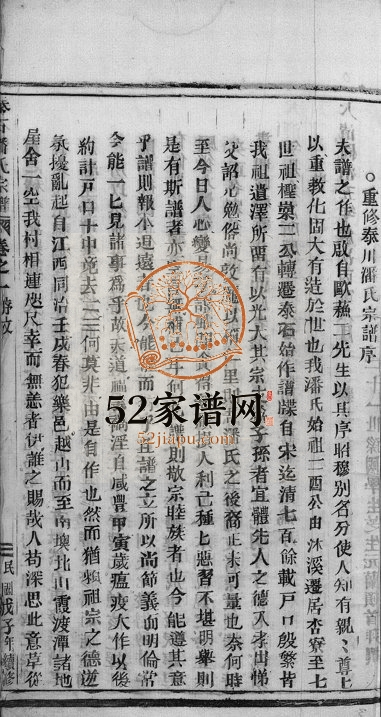 重修泰川潘氏宗譜序
夫譜之作也啟自歐蘇二先生以其序昭穆別名分使人知有親親尊尊上
以重教化固大有益於世也我潘氏始祖二酉公由沐溪遷居杏寮至七
世祖榧崇二公轉遷泰石始作譜牒自宋迄清七百餘載戶口殷繁皆
我祖遺澤所畱有以光大其宗 子孫者宜體先人之德入孝出悌
父詔兄勉俗尚敦龎以 里 潘氏之後裔正未可量也奈何時
至今日人心變易 人利己種種惡習不堪明舉則
是有斯譜者亦 無 年何 譜則敬宗睦族者也今能導其意
乎譜則報本追遠者也今能 而 且譜之立所以尚節義而明倫常
今能一一見諸事爲乎故天道 禍淫自咸豐甲寅歲瘟疫大作以後
約計戶口十中竟去二三何莫非由是自作也然而猶賴祖宗之德逆
氛擾亂起自江西同治壬戌春犯樂邑越山而至南墺北山霞渡潭諸地
屋舍一空我村相連咫尺幸而無恙者伊誰之賜哉人苟深思此意萃從
泰石潘氏宗譜
卷之一
序文
民國戊子年續修
52家谱网
52jiapu.com